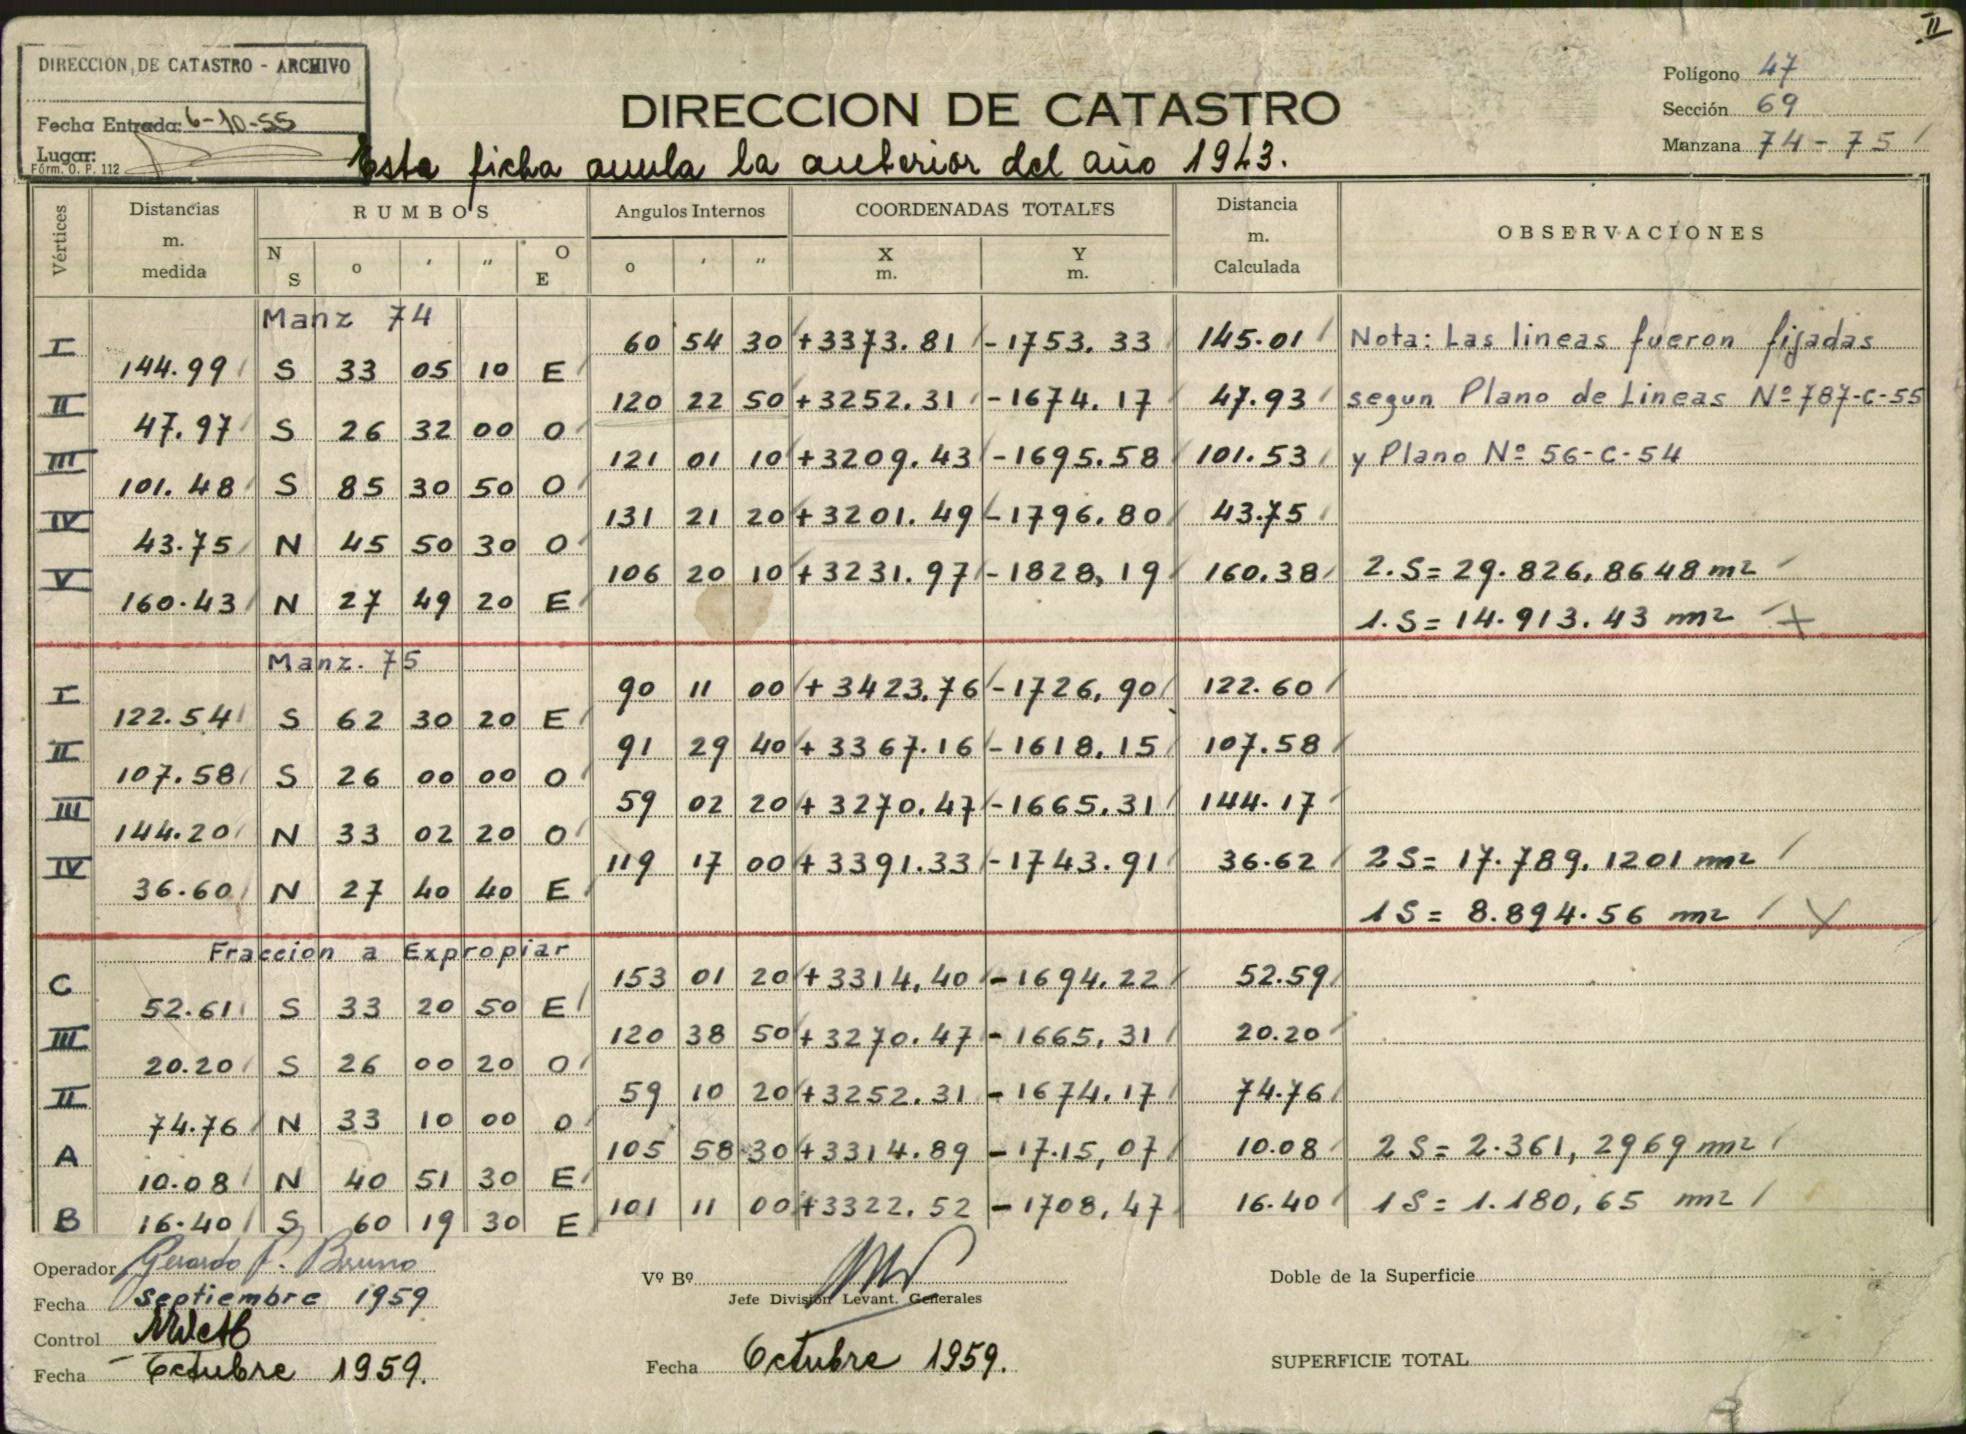 II
DIRECCION DE CATASTRO - ARCHIVO
Fecha Entrada: 6-10-55
Lugar:
Fórm. O. P. 112
DIRECCION DE CATASTRO
Esta ficha anula la anterior del año 1943.
Polígono 47
Sección 69
Manzana 74-75
Vértices
Distancias m. medida
RUMBOS
N S o ' " O E
Angulos Internos
o ' "
COORDENADAS TOTALES
X m. Y m.
Distancia m. Calculada
OBSERVACIONES
Manz 74
I 60 54 30 +3373.81 -1753.33 145.01 Nota: Las lineas fueron fijadas
144.99 S 33 05 10 E
II 120 22 50 +3252.31 -1674.17 47.93 segun Plano de Lineas Nº 787-C-55
47.97 S 26 32 00 O
III 121 01 10 +3209.43 -1695.58 101.53 y Plano Nº 56-C-54
101.48 S 85 30 50 O
IV 131 21 20 +3201.49 -1796.80 43.75
43.75 N 45 50 30 O
V 106 20 10 +3231.97 -1828,19 160.38 2.S= 29.826,8648 m2
160.43 N 27 49 20 E
1.S= 14.913.43 m2
Manz. 75
I 90 11 00 +3423.76 -1726,90 122.60
122.54 S 62 30 20 E
II 91 29 40 +3367.16 -1618.15 107.58
107.58 S 26 00 00 O
III 59 02 20 +3270.47 -1665.31 144.17
144.20 N 33 02 20 O
IV 119 17 00 +3391.33 -1743.91 36.62 2S= 17.789,1201 m2
36.60 N 27 40 40 E
1S= 8.894.56 m2
Fraccion a Expropiar
C 153 01 20 +3314,40 -1694.22 52.59
52.61 S 33 20 50 E
III 120 38 50 +3270.47 -1665,31 20.20
20.20 S 26 00 20 O
II 59 10 20 +3252.31 -1674.17 74.76
74.76 N 33 10 00 O
A 105 58 30 +3314.89 -17.15,07 10.08 2S= 2.361,2969 m2
10.08 N 40 51 30 E
B 101 11 00 +3322.52 -1708,47 16.40 1S= 1.180,65 m2
16.40 S 60 19 30 E
Operador Gerardo P. Bruno
Fecha Septiembre 1959
Control
Fecha Octubre 1959.
Vº Bº
Jefe División Levant. Generales
Fecha Octubre 1959.
Doble de la Superficie
SUPERFICIE TOTAL